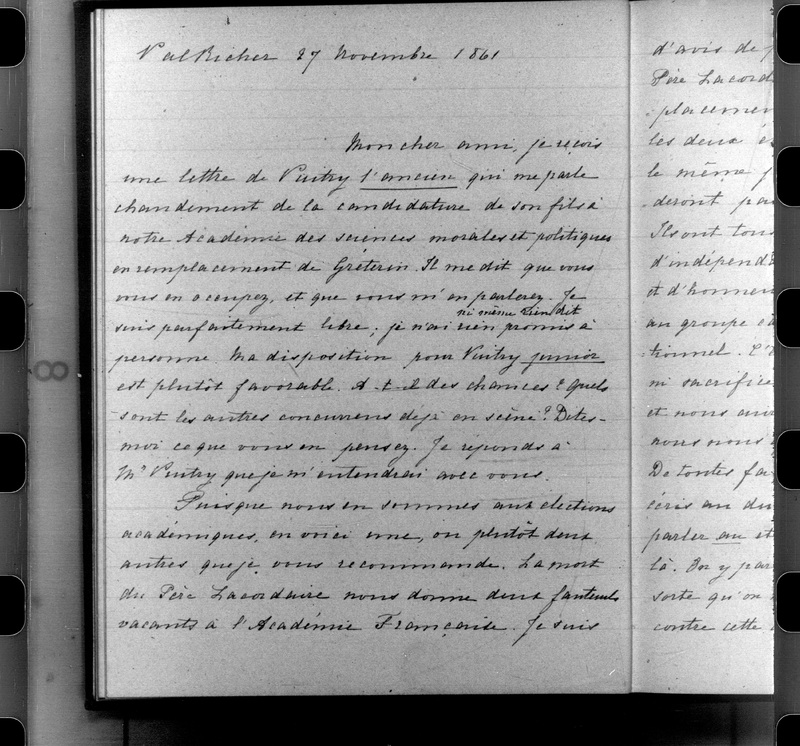 Val Richer 27 Novembre 1861
Mon cher ami, je reçois
une lettre de Vuitry l'ancien qui me parle
chaudement de la candidature de son fils à
notre Académie des sciences morales et politiques
en remplacement de Gréterin. Il me dit que vous
vous en occupez, et que vous m'en parlerez. Je
ni même rien dit
suis parfaitement libre ; je n'ai rien promis à
personne Ma disposition pour Vuitry junior
est plutôt favorable. A-t-il des chances ? Quels
sont les autres concurrens déjà en scène ? Dites-
moi ce que vous en pensez. Je réponds à
Mr Vuitry que je m'entendrai avec vous.
Puisque nous en sommes aux élections
académiques, en voici une, ou plutôt deux
autres que je vous recommande. La mort
du Père Lacordaire nous donne deux fauteuils
vacants à l'Académie Française. Je suis
d'avis de
Père Lacord
placemen
les deux
le même
deront pa
Ils ont tous
d'indépend
et d'honneu
au groupe
tionnel. C'
ni sacrifice
et nous au
nous nous
De toutes fa
écris au du
parler au et
là. On y par
sorte qu'on
contre cette
8